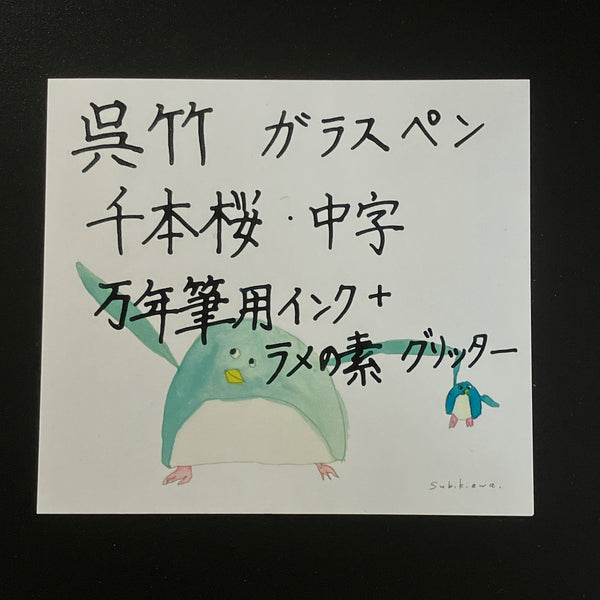 呉竹 ガラスペン
千本桜・中字
万年筆用インク+
ラメの素 グリッター
subikiawa.